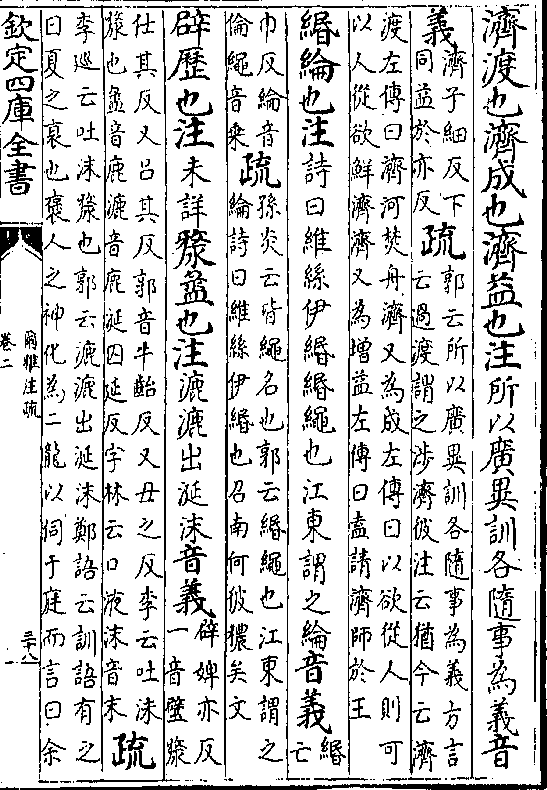 濟渡也濟成也濟益也注所以廣異訓各隨事為義音
義濟子細反下
同益於亦反疏郭云所以廣異訓各隨事為義方言
云過渡謂之涉濟彼注云猶今云濟
渡左傳曰濟河焚舟濟又為成左傳曰以欲從人則可
以人從欲鮮濟濟又為增益左傳曰盍請濟師於王
緡綸也注詩曰維絲伊緡緡繩也江東謂之綸音義緡
亡
巾反綸音
倫繩音乘疏孫炎云皆繩名也郭云緡繩也江東謂之
綸詩曰維絲伊緡也召南何彼穠矣文
辟歷也注未詳漦盝也注漉漉出涎沫音義辟婢亦反
一音壁漦
仕其反又呂其反郭音牛齝反又丑之反李云吐沫
漦也盝音鹿漉音鹿涎囚延反字林云口液沫音末疏
李巡云吐沫漦也郭云漉漉出涎沫鄭語云訓語有之
曰夏之衰也褒人之神化為二龍以同于庭而言曰余
欽定四庫全書
爾雅注疏
卷二
三十八